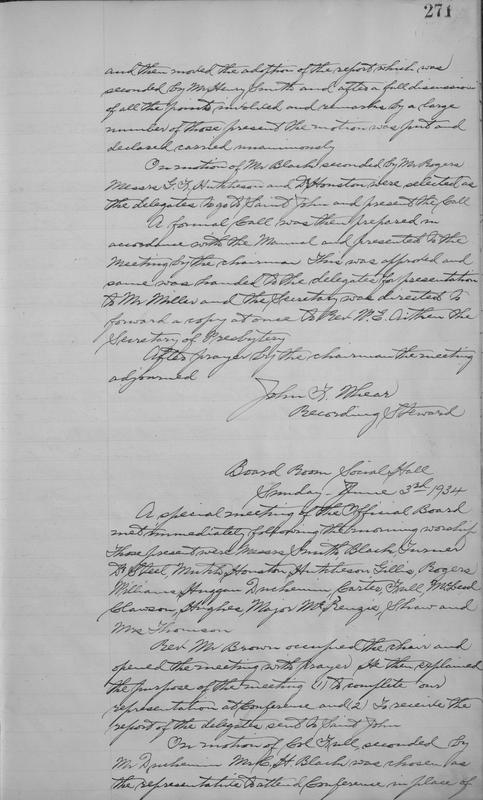 271
and then moved the adoption of the report which was
seconded by Mr Henry Smith and after a full discussion
of all the points involved and remarks by a large
number of those present the motion was put and
declared carried unanimously
On motion of Mr Black seconded by Mr Rogers
Messrs G. F. Hutcheson and Dr Houston were selected as
the delegates to go to Saint John and present the Call
A formal Call was then prepared in
accordance with the Manual and presented to the
Meeting by the chairman This was approved and
same was handed to the delegates for presentation
to Mr and the Secretary was directed to
forward a copy at once to Rev W. E. Aitken the
Secretary of Presbytery
After prayer by the chairman the meeting
adjourned
John F. Whear
Recording Steward
Board Room Social Hall
Sunday - June 3rd 1934
A special meeting of the Official Board
met immediately following the morning worship
Those present were Messrs Smith Black Turner
Dr Steel, Mutch, Houston Hutcheson Gillis, Rogers
Williams, Huggan Duchemin, Carter, Full, McLeod
Clawson, Hughes, Major McKenzie, Shaw and
Mrs Thomson
Rev Mr Brown occupied the chair and
opened the meeting with prayer He then explained
the purpose of the meeting (1) to complete our
representation at Conference and 2) To receive the
report of the delegates sent to Saint John
On motion of Col Full seconded by
Mr Duchemin Mr C. H. Black was chosen as
the representative to attend Conference in place of